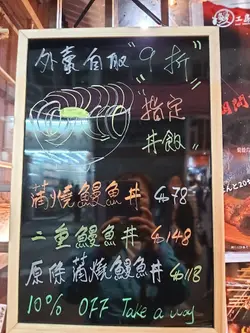 外賣自取"9折"
"指定
丼飯"
蒲燒鰻魚丼 $78
二重鰻魚丼 $148
原條蒲燒鰻魚丼 $118
10% OFF Take away